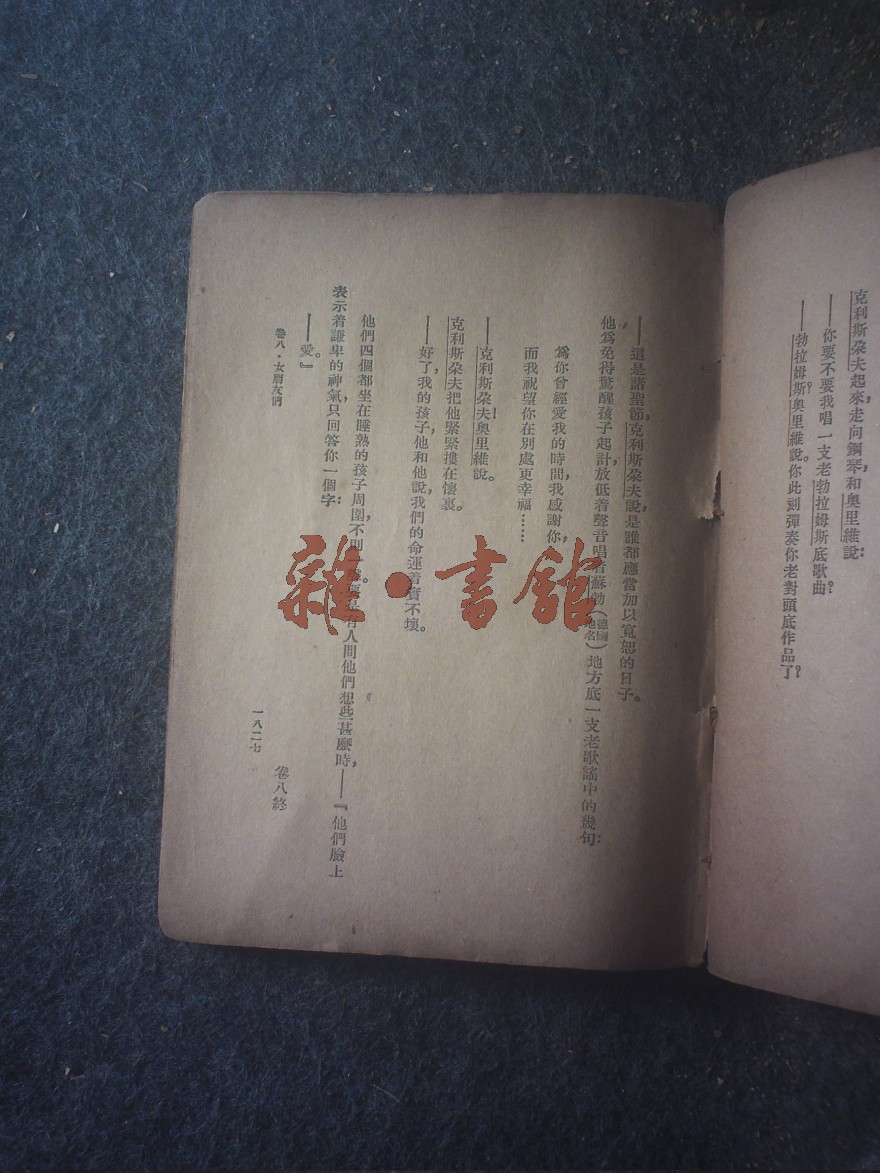 克利斯朶夫起來走向鋼琴和奧里維說：
——你要不要我唱一支老勃拉姆斯底歌曲？
——勃拉姆斯？奧里維說。你此刻彈奏你老對頭底作品了？
——這是諸聖節，克利斯朶夫說，是誰都應當加以寬恕的日子。
他爲免得驚醒孩子起計，放低着聲音唱着蘇勃（德國地名）地方底一支老歌謠中的幾句：
爲你曾經愛我的時間，我感謝你，
而我祝望你在別處更幸福……
——克利斯朶夫！奧里維說。
克利斯朶夫把他緊緊摟在懷裏。
——好了，我的孩子，他和他說，我們的命運着實不壞。
他們四個都坐在睡熟的孩子周圍，不則 有人問他們想些甚麼時，——『他們臉上
表示着謙卑的神氣，只回答你一個字：
——愛。』
卷八終
卷八·女朋友們
一八二七
雜·書館